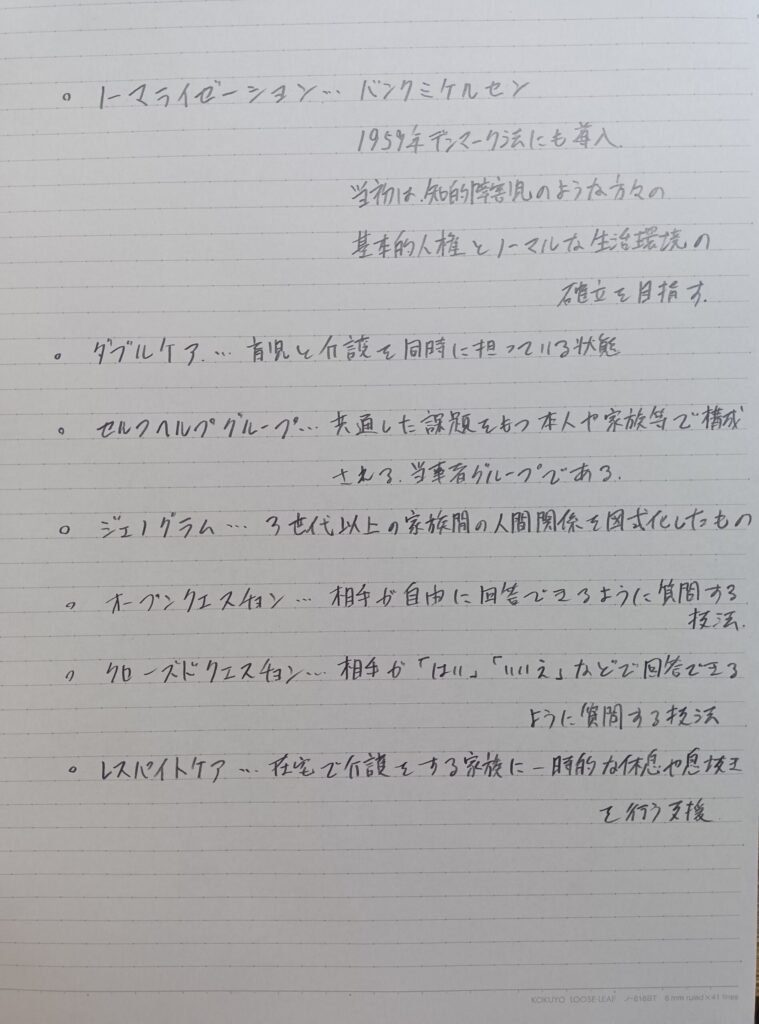 。ノーマライゼーション… バンクミケルセン
1959年デンマーク法にも導入.
当初は.知的障害児のような方々の
基本的人権とノーマルな生活環境の
確立を目指す.
。ダブルケア.… 育児と介護を同時に担っている状態
。セルフヘルプグループ… 共通した課題をもつ本人や家族等で構成
される.当事者グループである.
。ジェノグラム… 3世代以上の家族間の人間関係を図式化したもの
。オープンクエスチョン… 相手が自由に回答できるように質問する
技法.
。クローズドクエスチョン… 相手が「はい」「いいえ」などで回答できる
ように質問する技法
。レスパイトケア… 在宅で介護をする家族に一時的な休息や息抜き
を行う支援
KOKUYO LOOSE-LEAF ノ-816BT 6mm ruled×41 lines